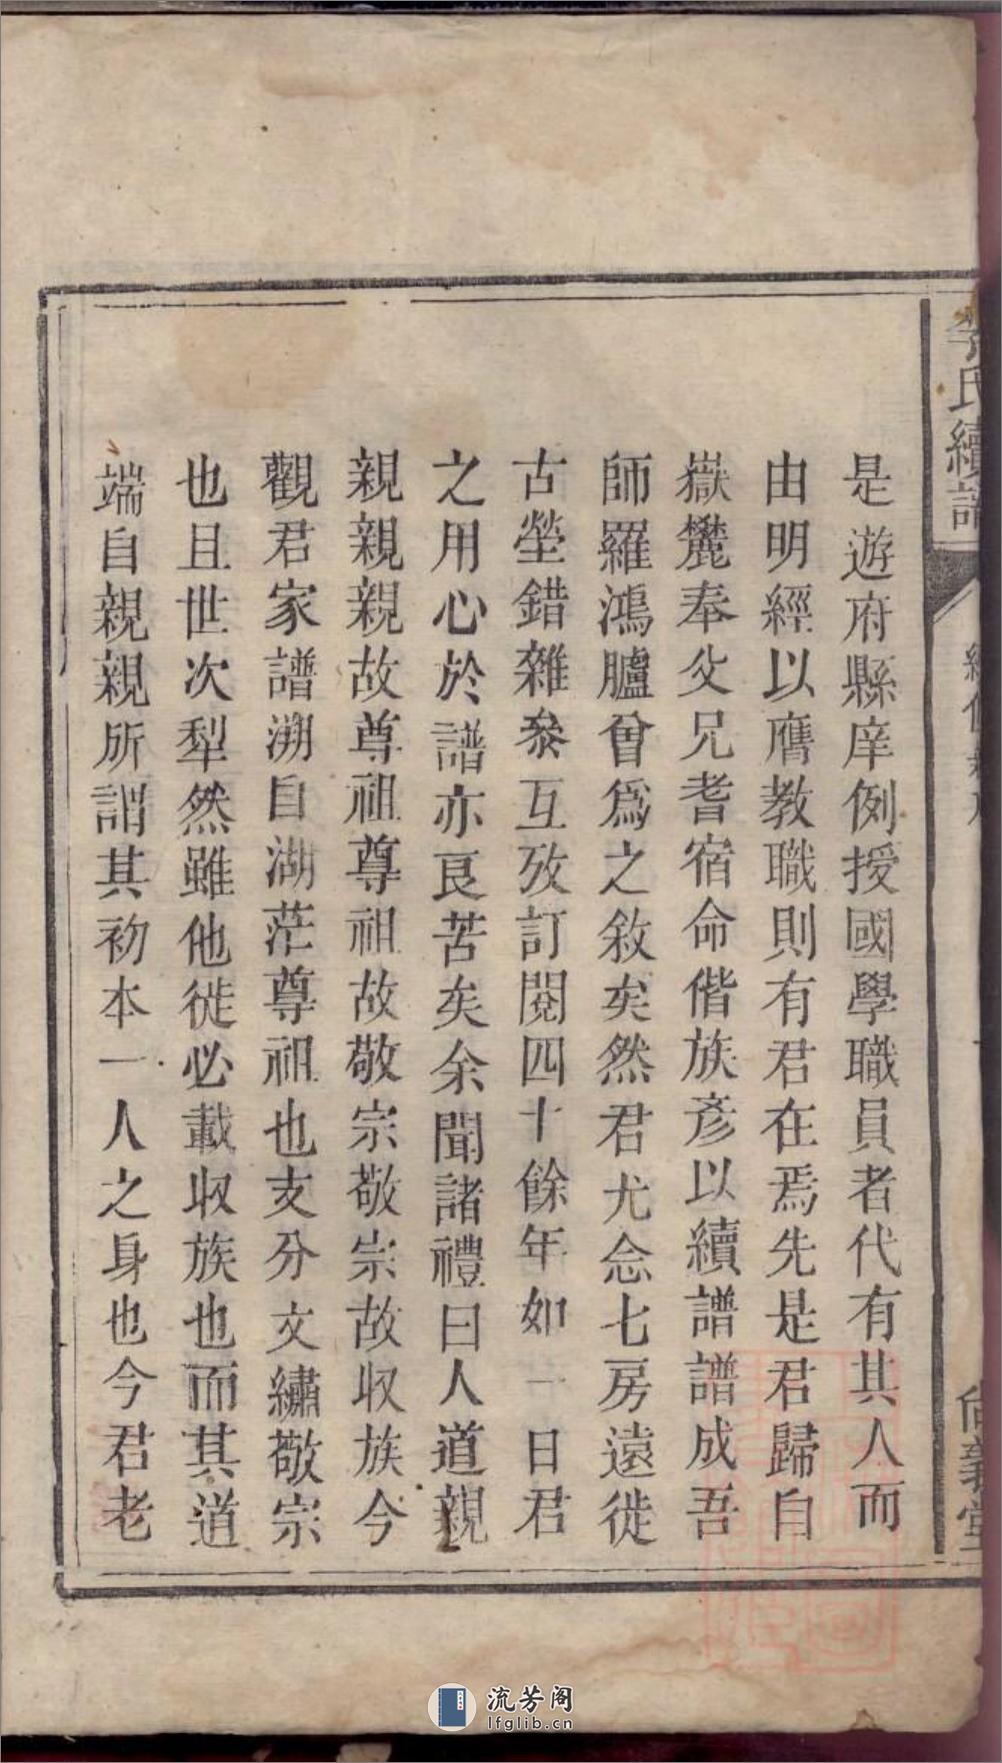 李氏續譜
尚義堂
是遊府縣庠例授國學職員者代有其人而
由明經以膺教職則有君在焉先是君歸自
嶽麓奉父兄耆宿命偕族彥以續譜譜成吾
師羅鴻臚曾爲之敘矣然君尤念七房遠徙
古塋錯雜叅互攷訂閱四十餘年如一日君
之用心於譜亦良苦矣余聞諸禮曰人道親
親親親故尊祖尊祖故敬宗敬宗故収族今
觀君家譜溯自湖茫尊祖也支分文繡敬宗
也且世次犁然雖他徙必載収族也而其道
端自親親所謂其初本一人之身也今君老
流芳阁
lfglib.cn